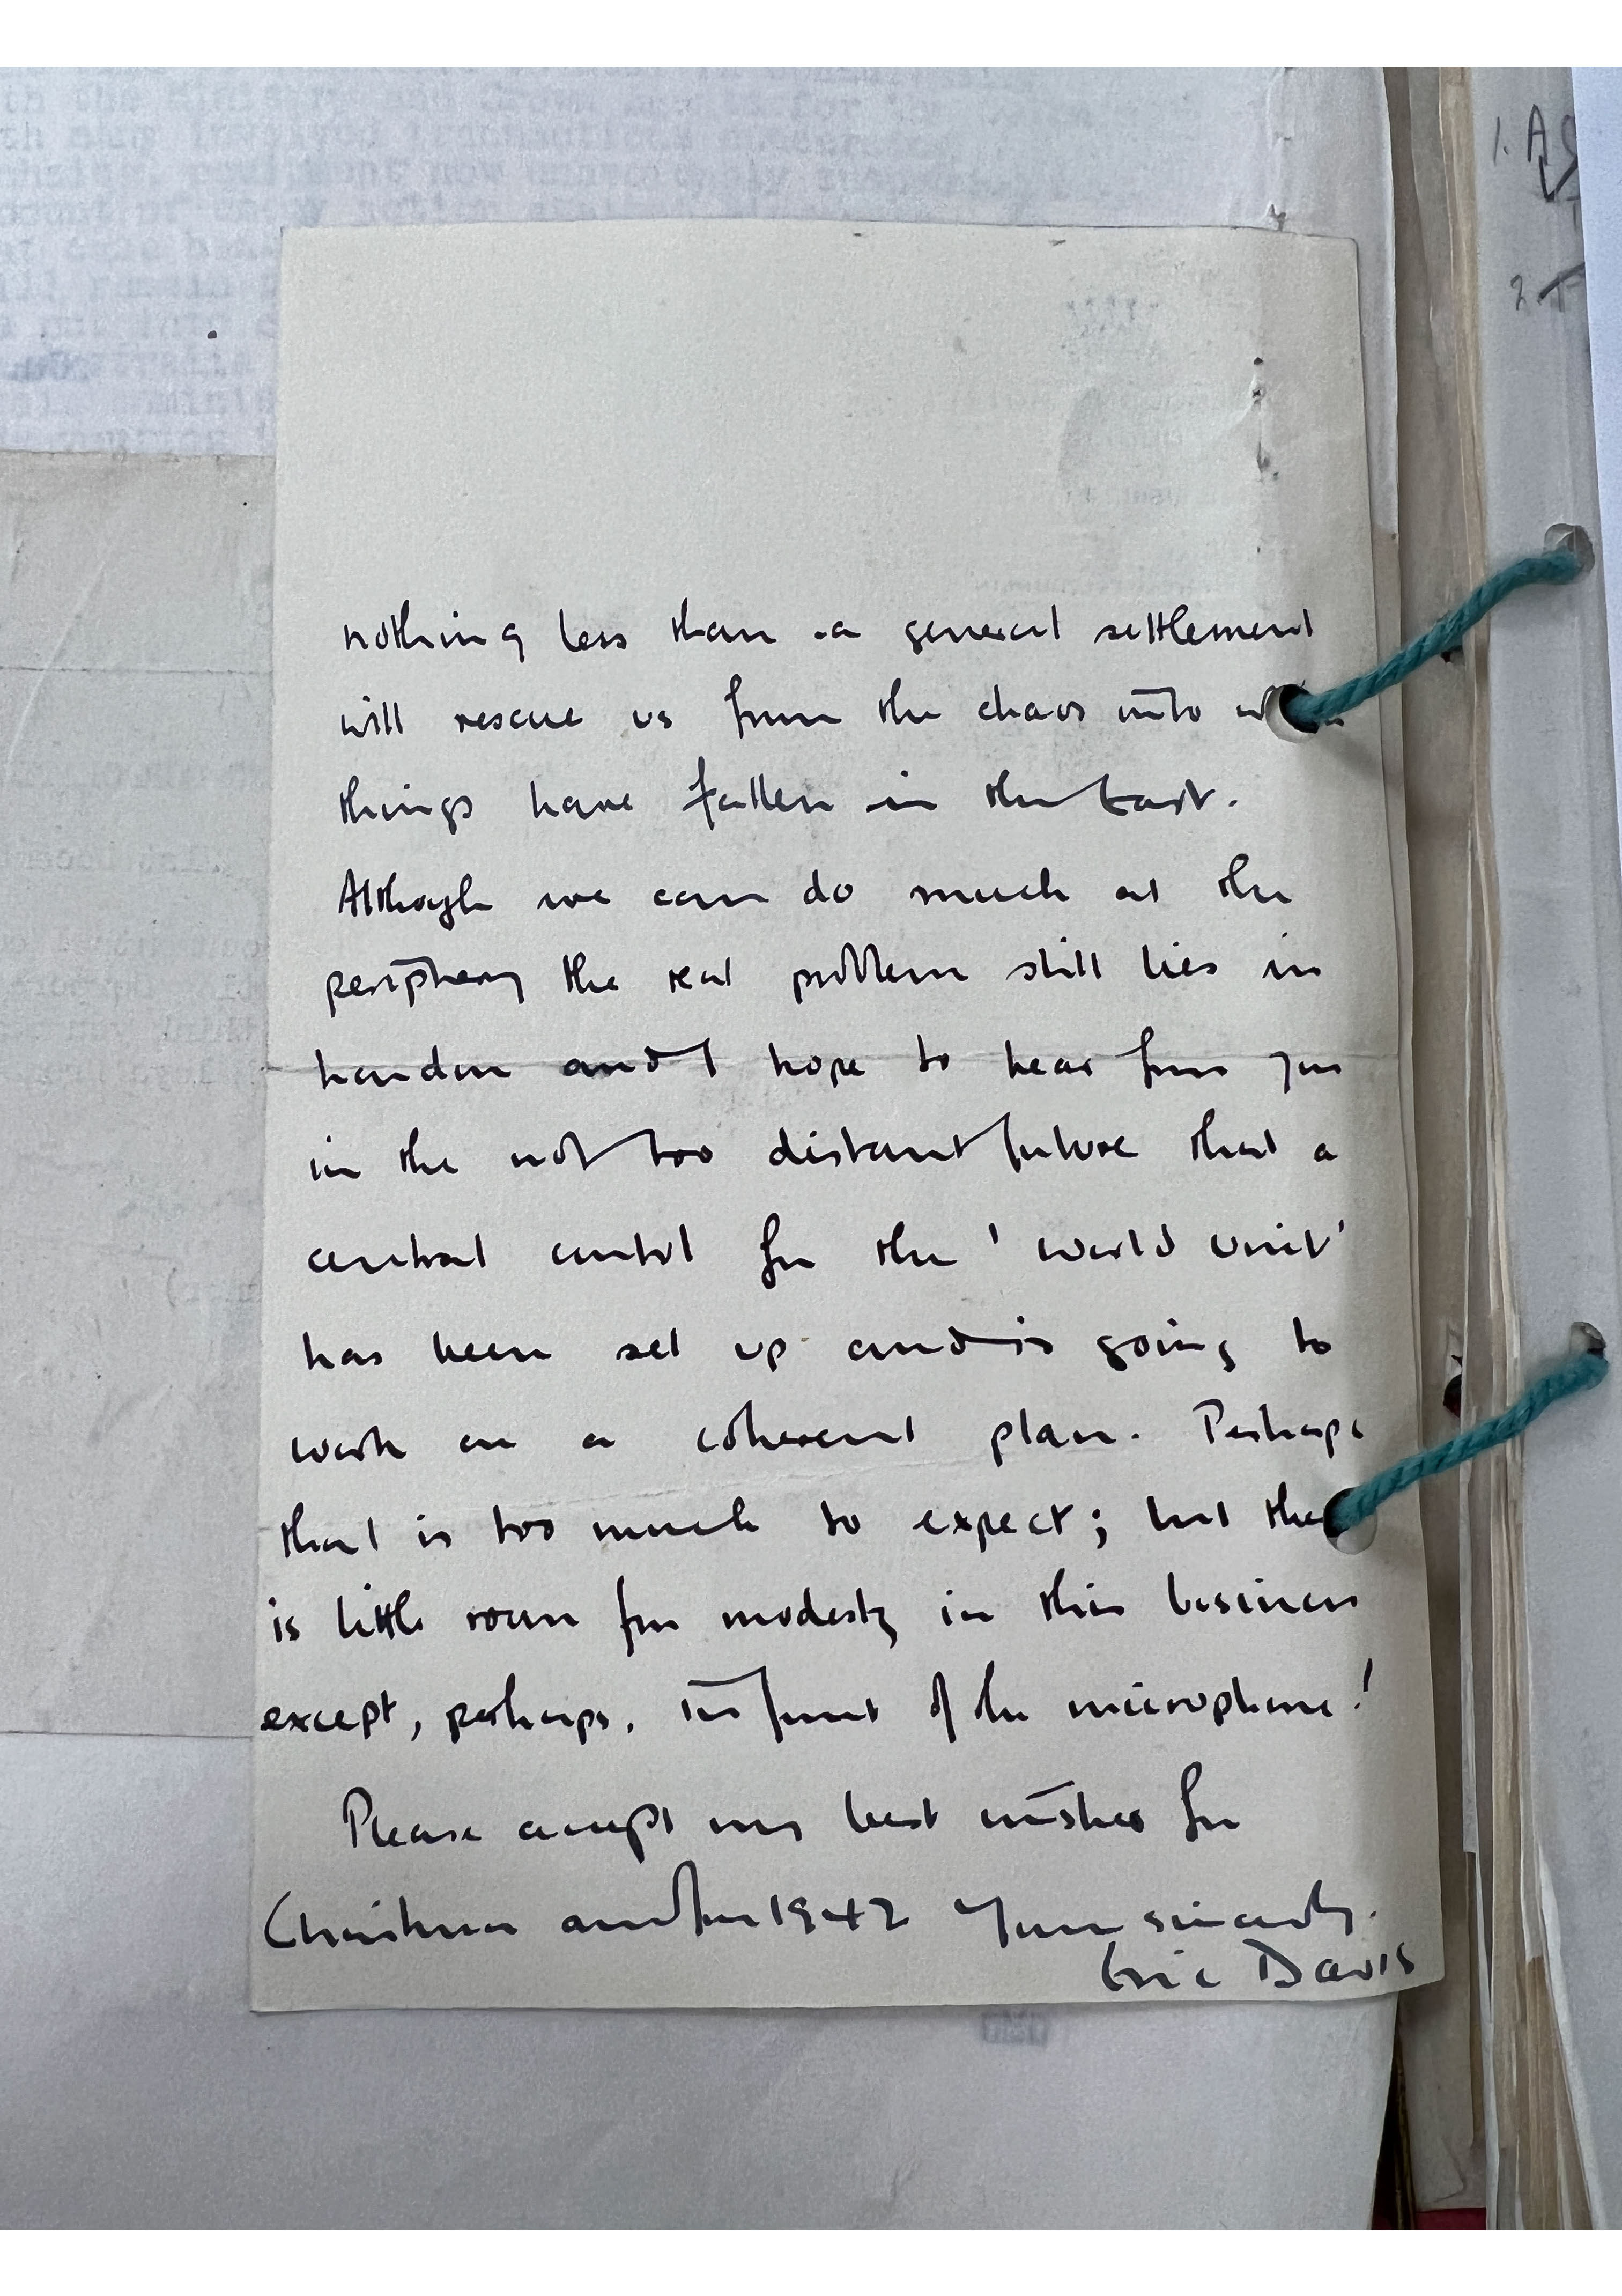 nothing less than a general settlement
will rescue us from the chaos into
things have fallen in the East.
Although we can do much at the
periphery the real problem still lies in
London and I hope to hear from you
in the not too distant future that a
central control for the 'world unit'
has been set up and is going to
work on a coherent plan. Perhaps
that is too much to expect; but
is little room for modesty in this business
except, perhaps, in front of the microphone!
Please accept my best wishes for
Christmas and for 1942 Yours sincerely.
Eric Davis
1.
2.